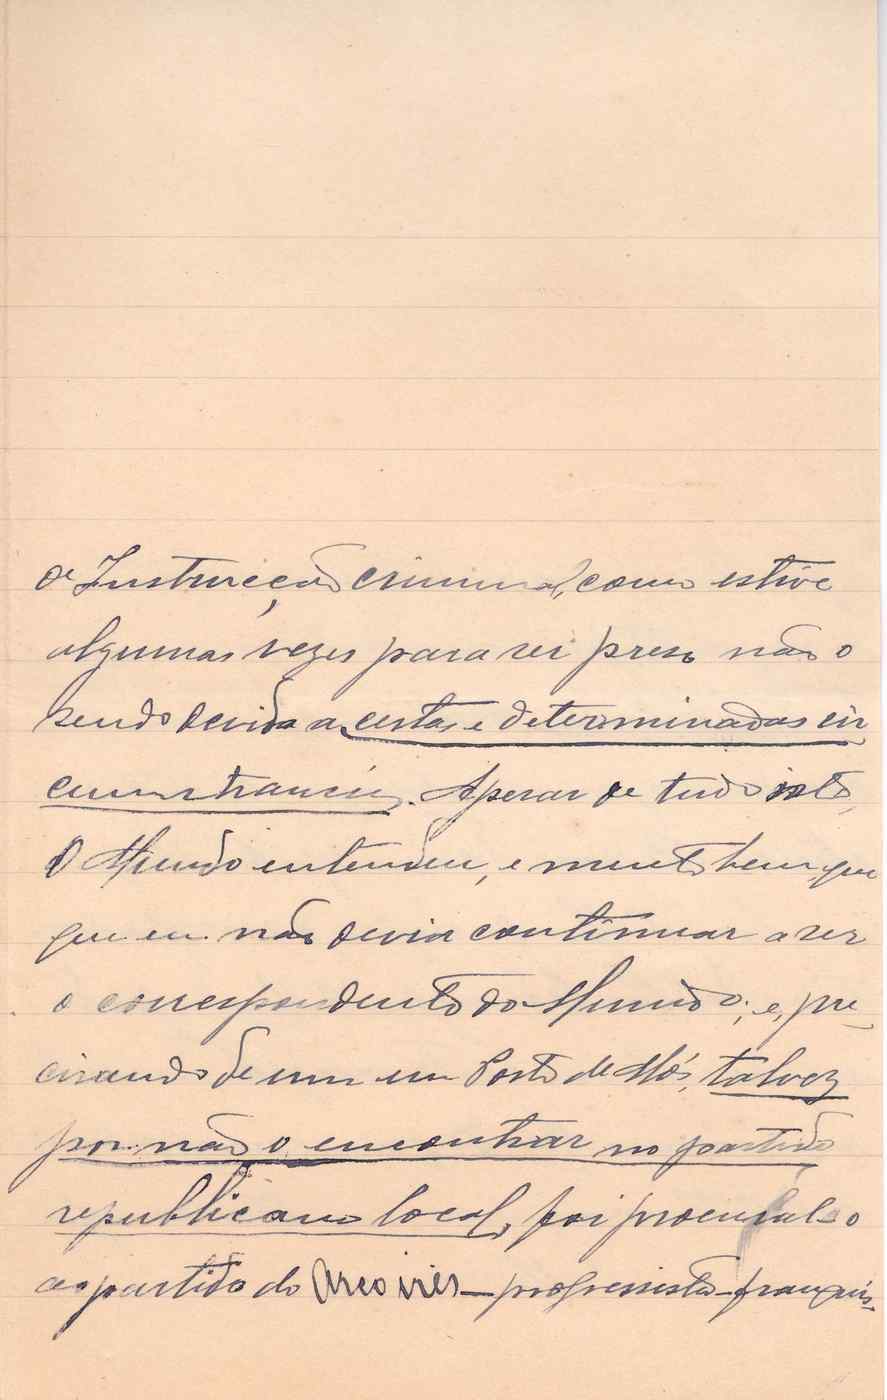 de Instrucção criminal, como estive
algumas vezes para ser preso não o
sendo devido a certas e determinadas cir
cumstancias. Apesar de tudo isto,
O Mundo entendeu, e muito bem, que
que eu não devia continuar a ser
o correspondente do Mundo; e, pre-
cisando de um em Porto de Mós, talvez
por não o encontrar no partido
republicano local, foi procural-o
ao partido do Arco iris — progressista-franquis-